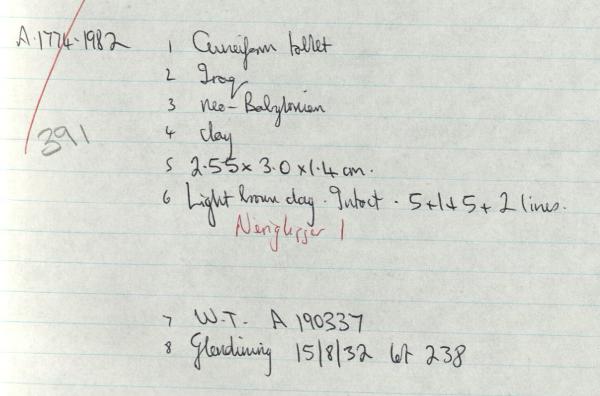 A.1774-1982
1 Cuneiform tablet
2 Iraq
3 neo-Babylonian
4 clay
391
5 2.55 x 3.0 x 1.4 cm.
6 Light brown clay. Intact. 5+1+5+2 lines.
Neriglissar 1
7 W.T. A 190337
8 Glendining 15/8/32 lot 238